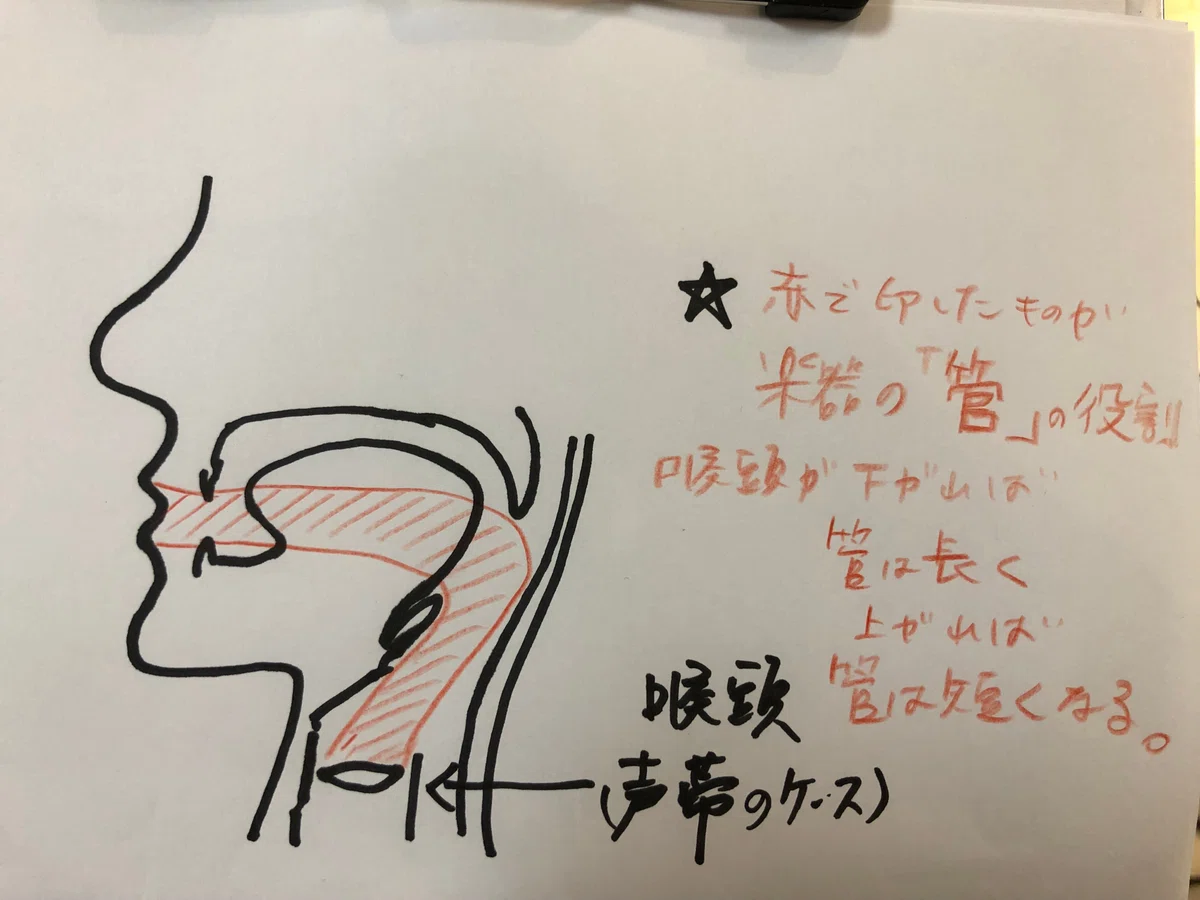 ☆ 赤で印したものが
楽器の「管」の役割
喉頭が下がれば
管は長く
上がれば
管は短くなる。
喉頭
(声帯のケース)